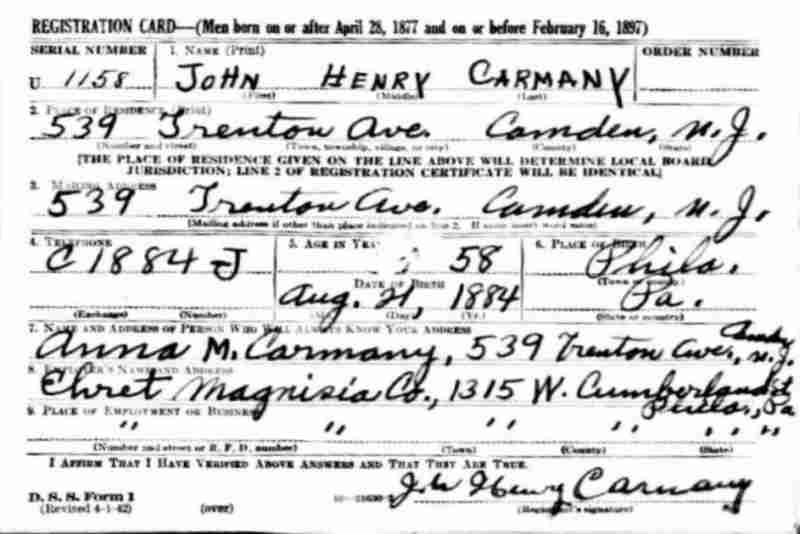 REGISTRATION CARD—(Men born on or after April 28, 1877 and on or before February 16, 1897)
SERIAL NUMBER 1. NAME (Print) ORDER NUMBER
U 1158 JOHN HENRY CARMANY
(First) (Middle) (Last)
2. PLACE OF RESIDENCE (Print)
539 Trenton Ave. Camden, N.J.
(Number and street) (Town, township, village, or city) (County) (State)
[THE PLACE OF RESIDENCE GIVEN ON THE LINE ABOVE WILL DETERMINE LOCAL BOARD
JURISDICTION; LINE 2 OF REGISTRATION CERTIFICATE WILL BE IDENTICAL]
3. MAILING ADDRESS
539 Trenton Ave. Camden, N.J.
[Mailing address if other than place indicated on line 2. If same insert word same]
4. TELEPHONE 5. AGE IN YEARS 6. PLACE OF BIRTH
C 1884 J 58 Phila.
DATE OF BIRTH (Town or county)
Aug. 21, 1884 Pa.
(Exchange) (Number) (Mo.) (Day) (Yr.) (State or country)
7. NAME AND ADDRESS OF PERSON WHO WILL ALWAYS KNOW YOUR ADDRESS
Anna M. Carmany, 539 Trenton Ave, Camden, N.J.
8. EMPLOYER'S NAME AND ADDRESS
Ehret Magnisia Co., 1315 W. Cumberland St
Phila., Pa
9. PLACE OF EMPLOYMENT OR BUSINESS
" " " " " "
(Number and street or R. F. D. number) (Town) (County) (State)
I AFFIRM THAT I HAVE VERIFIED ABOVE ANSWERS AND THAT THEY ARE TRUE.
D. S. S. Form 1
(Revised 4-1-42) (over) John Henry Carmany
(Registrant's signature)